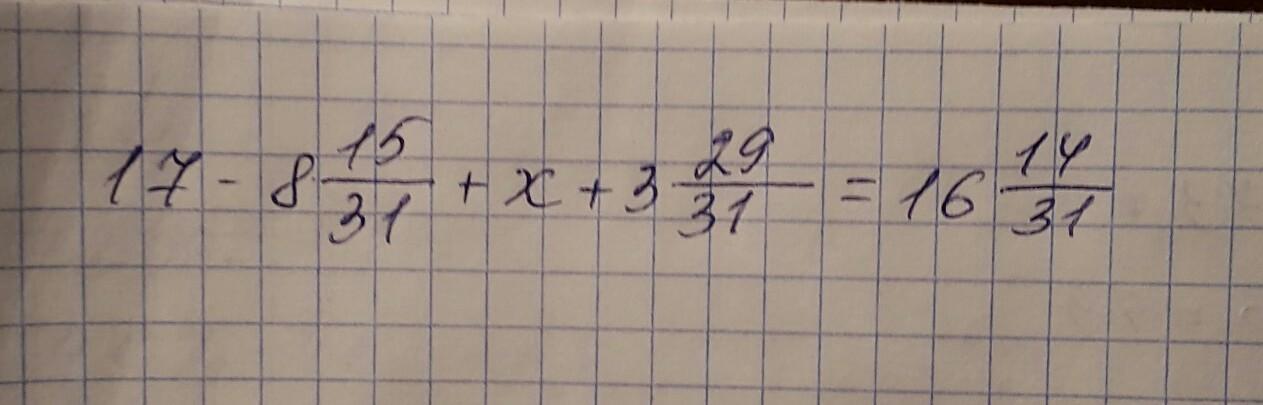 17 - 8 15/31 + x + 3 29/31 = 16 14/31